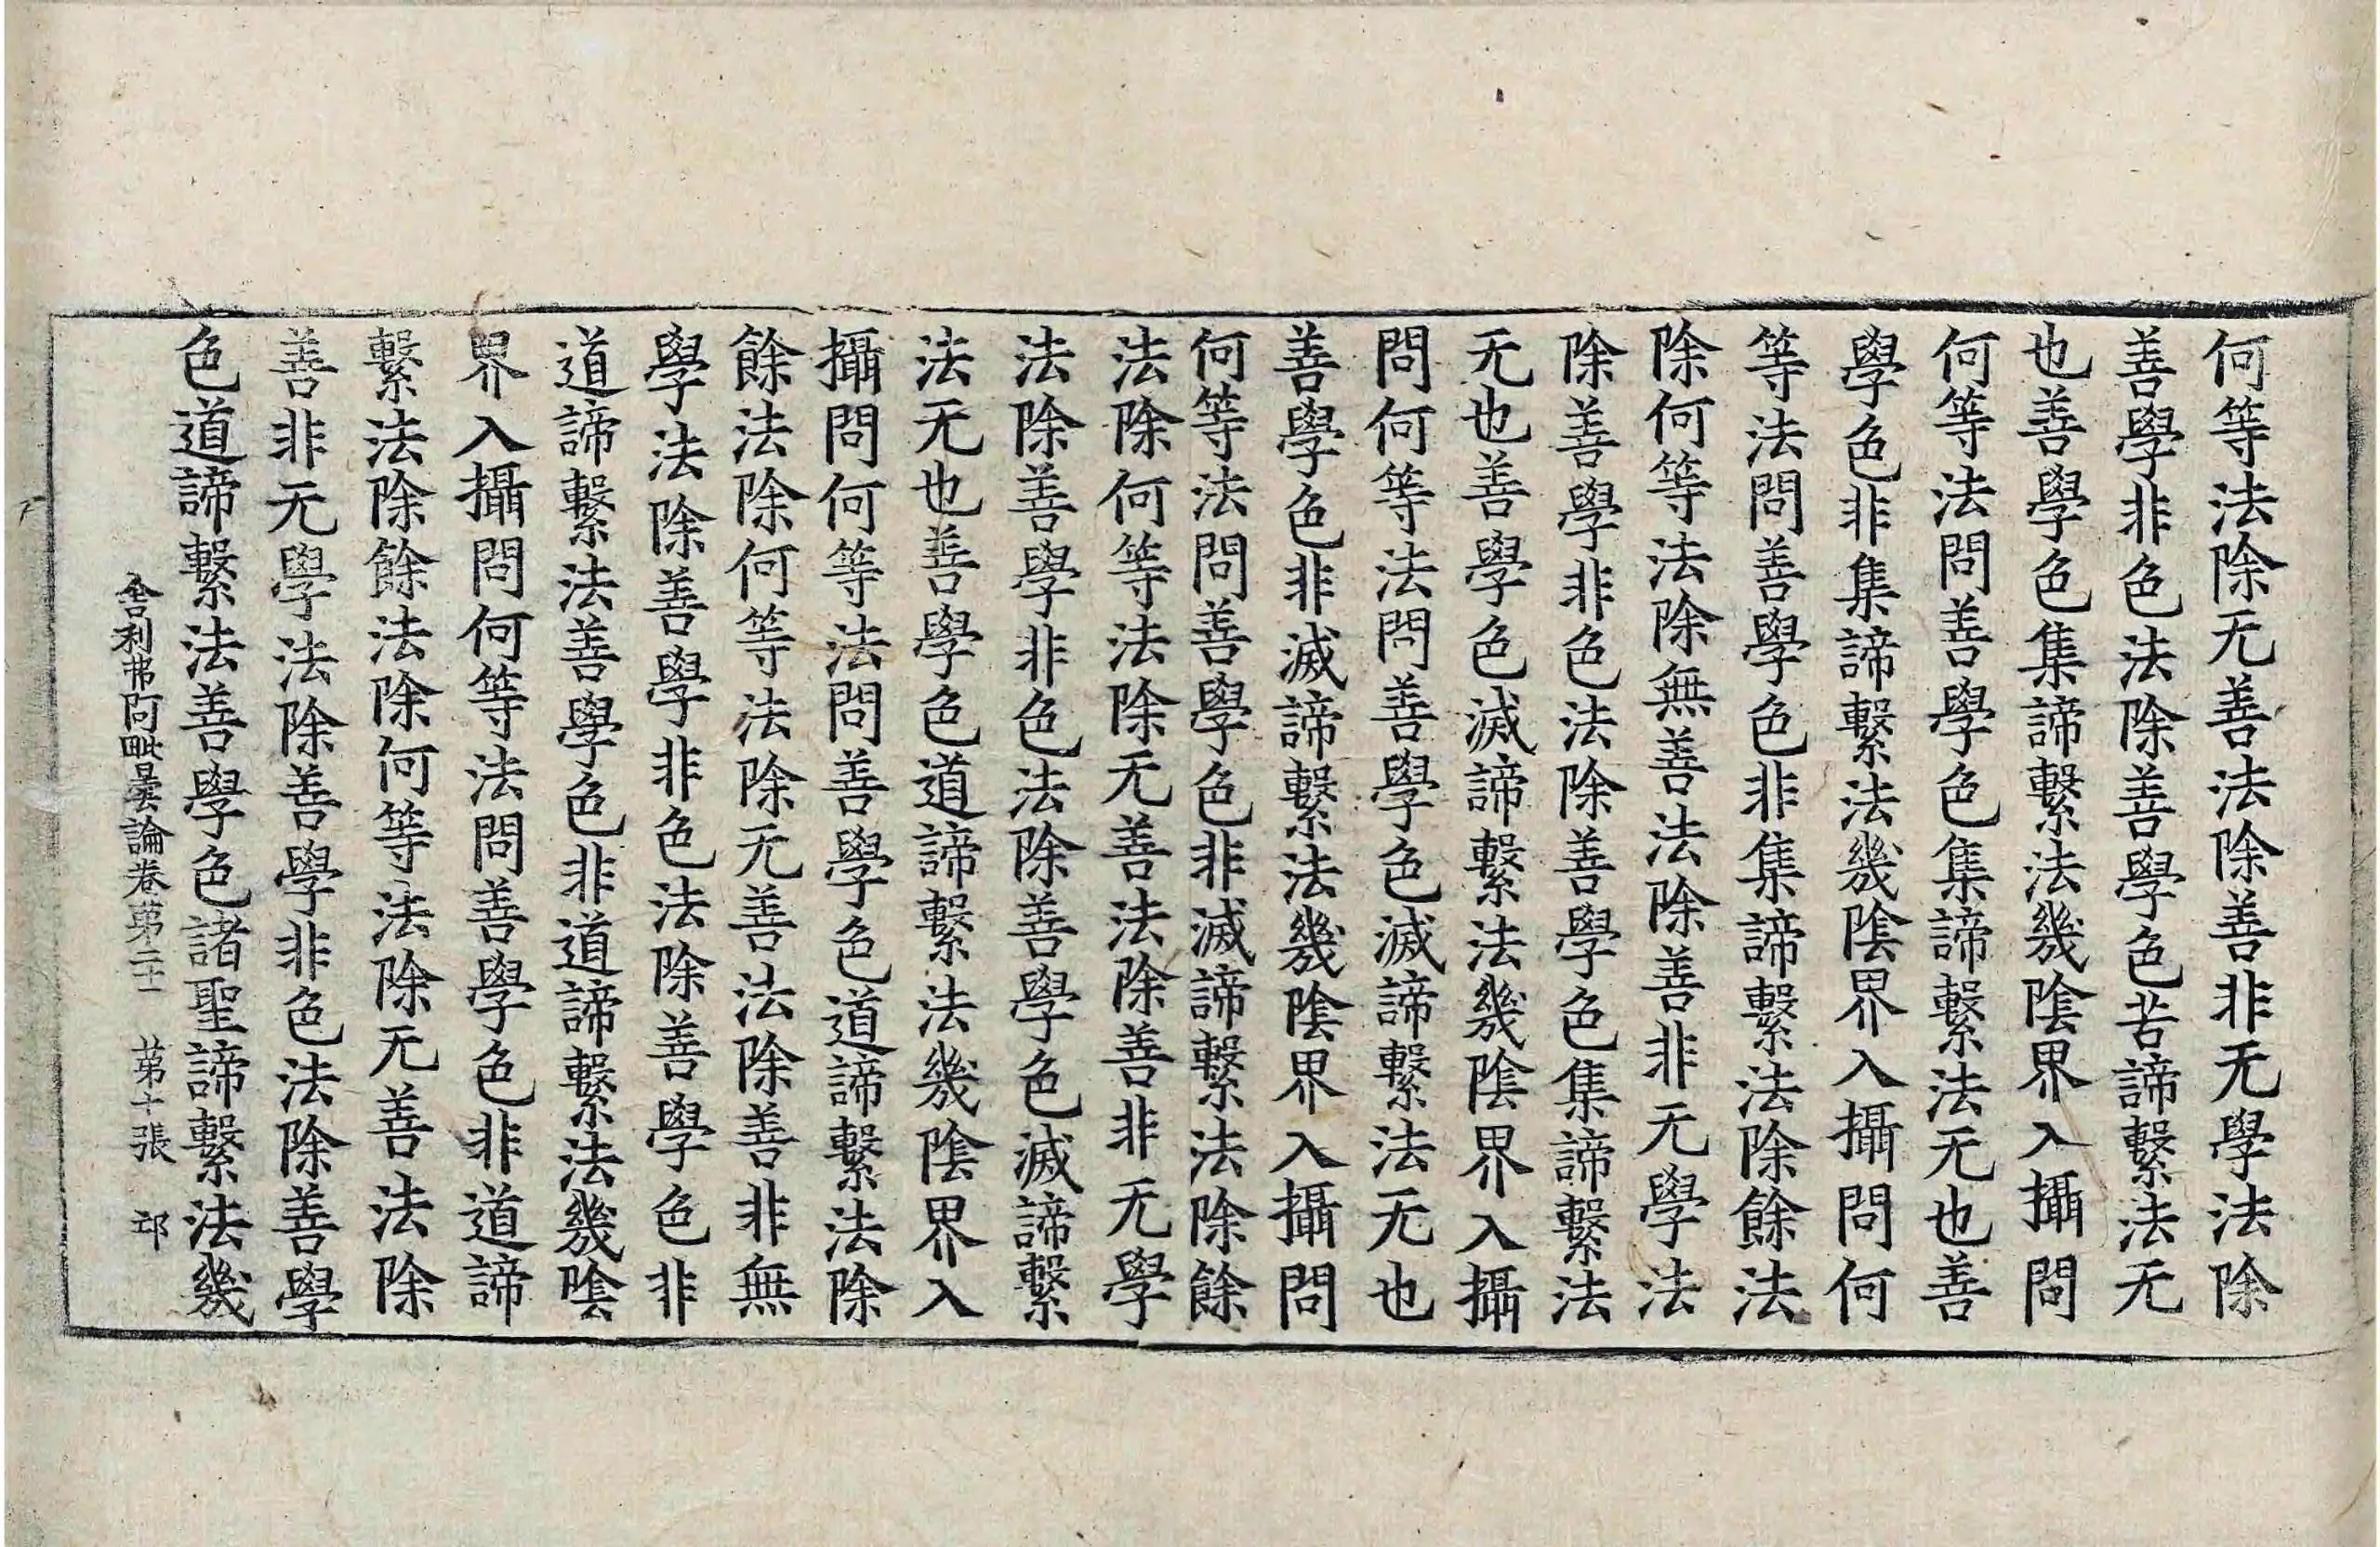 何等法除无善法除善非无學法除
善學非色法除善學色苦諦繫法无
也善學色集諦繫法幾陰界入攝問
何等法問善學色集諦繫法无也善
學色非集諦繫法幾陰界入攝問何
等法問善學色非集諦繫法除餘法
除何等法除無善法除善非无學法
除善學非色法除善學色集諦繫法
无也善學色滅諦繫法幾陰界入攝
問何等法問善學色滅諦繫法无也
善學色非滅諦繫法幾陰界入攝問
何等法問善學色非滅諦繫法除餘
法除何等法除无善法除善非无學
法除善學非色法除善學色滅諦繫
法无也善學色道諦繫法幾陰界入
攝問何等法問善學色道諦繫法除
餘法除何等法除无善法除善非無
學法除善學非色法除善學色非
道諦繫法善學色非道諦繫法幾陰
界入攝問何等法問善學色非道諦
繫法除餘法除何等法除无善法除
善非无學法除善學非色法除善學
色道諦繫法善學色諸聖諦繫法幾
舍利弗阿毗曇論卷苐二十一 苐十張 卭